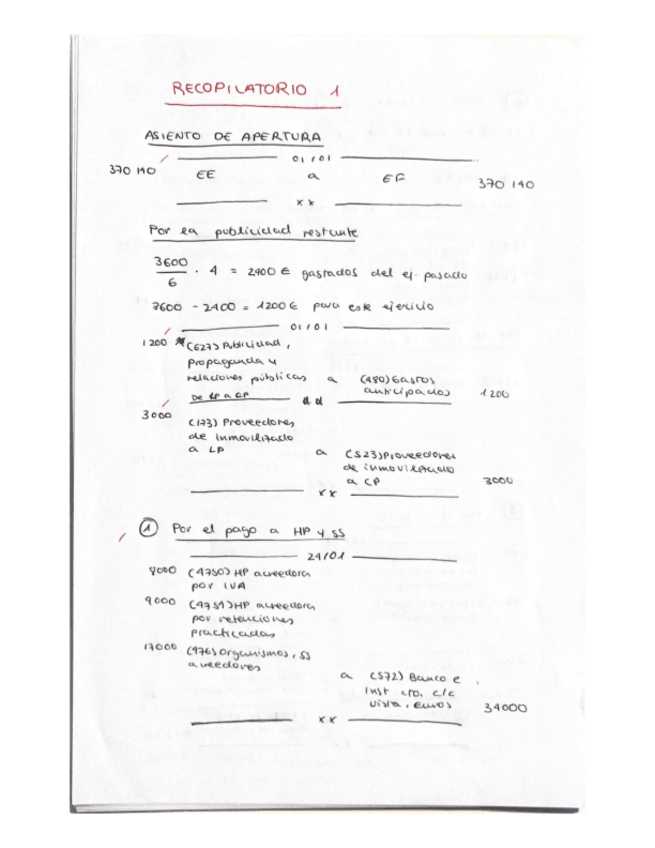 RECOPILATORIO 1
ASIENTO DE APERTURA
01/01
370 140 EE a EF 370 140
xx
Por la publicidad restante
3600
6
· 4 = 2400 € gastados del ej. pasado
3600 - 2400 = 1200 € para este ejercicio
01/01
1200 (627) Publicidad,
propaganda y
relaciones públicas a (480) Gastos
anticipados 1200
DE LP a CP dd
3000 (173) Proveedores
de inmovilizado
a LP a (523) Proveedores
de inmovilizado
a CP 3000
xx
1 Por el pago a HP y SS
24/01
8000 (4750) HP acreedora
por IVA
9000 (4751) HP acreedora
por retenciones
practicadas
17000 (476) Organismos, SS
acreedores
a (572) Banco e
Inst cto. c/c
vista, euros 34000
xx